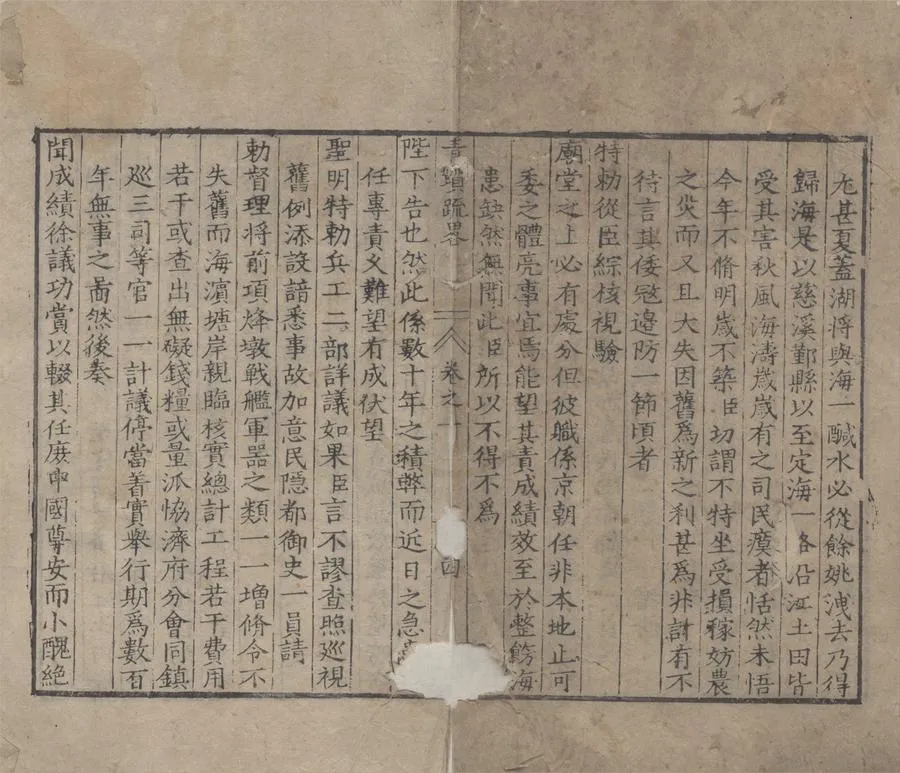 尤甚夏蓋湖將與海一醎水必從餘姚洩去乃得
歸海是以慈溪鄞縣以至定海一路沿江土田皆
受其害秋風海濤歲歲有之司民瘼者恬然未悟
今年不脩明歲不築臣切謂不特坐受損稼妨農
之災而又且大失因舊爲新之利甚爲非計有不
待言其倭寇邉防一節頃者
特勑從臣綜核視驗
廟堂之上必有處分但彼職係京朝任非本地止可
委之體亮事宜焉能望其責成績效至於整飭海
患缺然無聞此臣所以不得不爲
青瑣疏畧 卷之一 四
陛下告也然此係數十年之積弊而近日之急
任專責乂難望有成伏望
聖明特勑兵工二部詳議如果臣言不謬查照廵視
舊例添設諳悉事故加意民隱都御史一員請
勑督理將前項烽墩戰艦軍器之類一一增脩令不
失舊而海濵塘岸親臨核實總計工程若干費用
若干或查出無礙錢糧或量派恊濟府分會同鎮
廵三司等官一一計議停當着實舉行期爲數百
年無事之啚然後奏
聞成績徐議功賞以輟其任庻中國尊安而小醜絶